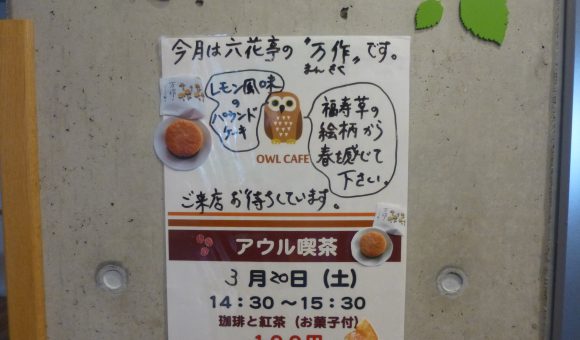 今月は六花亭の"万作"です。
まんさく
レモン風味
の
パウンド
ケーキ
福寿草の
絵柄から
春を感じて
下さい。
OWL CAFE
ご来店お待ちしています。
アウル喫茶
3月20日（土）
14：30～15：30
珈琲と紅茶（お菓子付）
100円